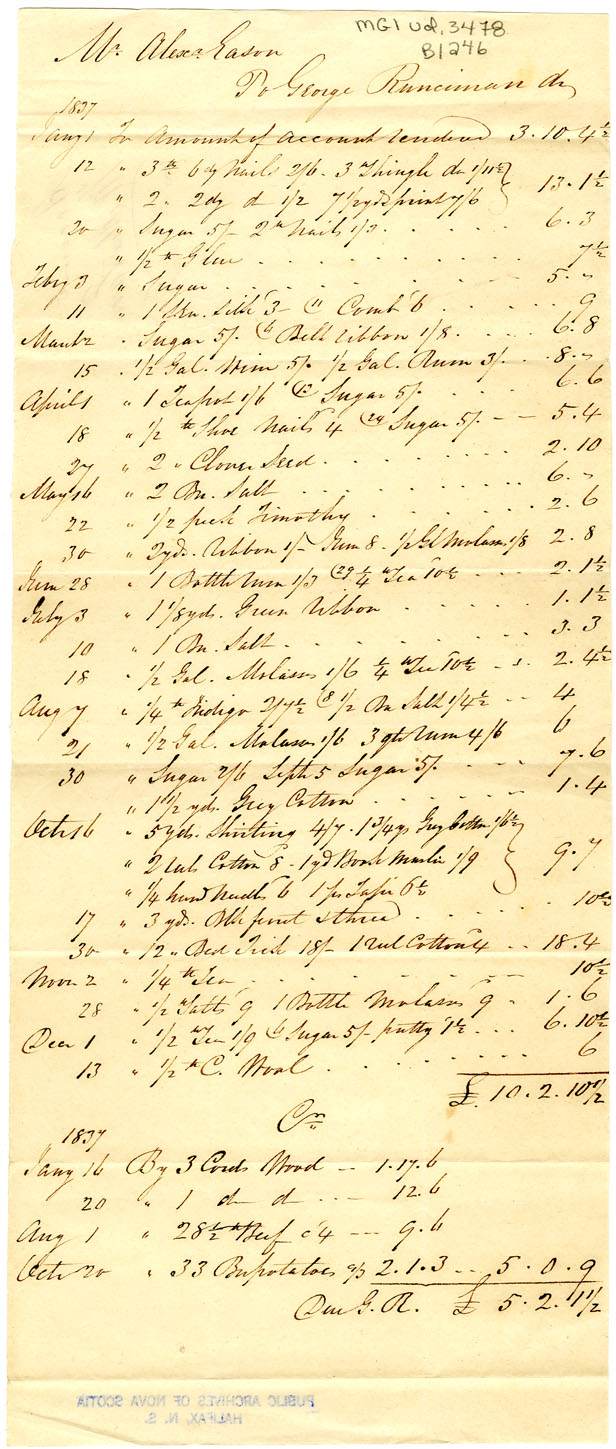 MG1 vol. 3478
B1246
Mr Alexr Eason
To George Runciman Dr
1837
Jany 1 To Amount of account rendered 3. 10. 4½
12 " 3 lb 6dy Nails 2/6 - 3 Shingle do 1/11½
" 2 " 2dy d 1/2 7½ yds print 7/6 13. 1½
20 " Sugar 5/- 2 lb Nails 1/3 6. 3
" ½ lb Glue 7½
Feby 3 " Sugar 5. "
11 " 1 Skn. Silk 3 - 11 Comb 6 9
March 2 " Sugar 5/. Belt ribbon 1/8 6. 8
15 " ½ Gal. Wine 5/. ½ Gal. Rum 3/- 8. "
April 1 " 1 Teapot 1/6 12 Sugar 5/. 6. 6
18 " ½ lb Shoe Nails 4 24 Sugar 5/- 5. 4
27 " 2 " Clover Seed 2. 10
May 16 " 2 Bu. Salt 6. "
22 " ½ peck Timothy 2. 6
30 " 2 yds. Ribbon 1/- 8 - ½ Gl Molases 1/8 2. 8
June 28 " 1 Bottle Rum 1/3 29 ¼ lb Tea 10½ 2. 1½
July 3 " 1 1/8 yds. Green Ribbon 1. 1½
10 " 1 Bu. Salt 3. 3
18 " ½ Gal. Molasses 1/6 ¼ lb Tea 10½ 2. 4½
Aug 7 " ¼ lb Indigo 2/7½ 8 ½ Bu Salt 1/4½ 4
21 " ½ Gal. Molasses 1/6 3 qts Rum 4/6 6
30 " Sugar 2/6 Septr 5 Sugar 5/. 7. 6
" 1½ yds. Grey Cotton 1. 4
Octr 16 " 5 yds. Shirting 4/7 - 1¾ ys Grey Cotton 1/6½
" 2 reels Cotton 8 - 1 yd Book Muslin 1/9 9. 7
" ¼ hund Needles 6 1 ps Tape 6½
17 " 3 yds. Blk print & thread 10½
30 " 12 " Bed Tick 18/- 1 reel Cotton 4 18. 4
Novr 2 " ¼ lb Tea 10½
28 " ½ 9 1 Bottle Molasses 9 1. 6
Decr 1 " ½ lb Tea 1/9 Sugar 5/- putty 1½ 6. 10½
13 " ½ lb C. Wool 6
£ 10. 2. 10½
Cr
1837
Jany 16 By 3 Cords Wood 1. 17. 6
20 " 1 d d 12. 6
Aug 1 " 28½ lb Beef @ 4 9. 6
Octr 20 " 33 Bu potatoes 1/3 2. 1. 3 5. 0. 9
Due G. R. £ 5. 2. 1½
PUBLIC ARCHIVES OF NOVA SCOTIA
HALIFAX, N. S.